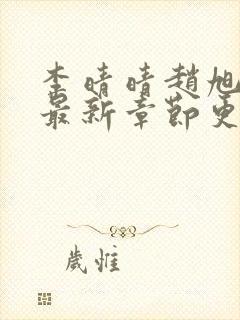 李晴晴趙旭
最新章節更
歲惟